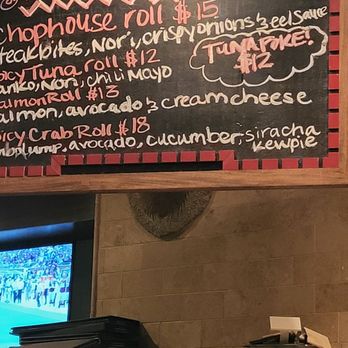 hophouse roll $15
teak bites, Nori, crispy onions & eel sauce
TUNA POKE!
$12
icy Tuna roll $12
anko, Nori, chili Mayo
almon Roll $13
almon, avocado & cream cheese
icy Crab Roll $18
mbo lump, avocado, cucumber, siracha
kewpie